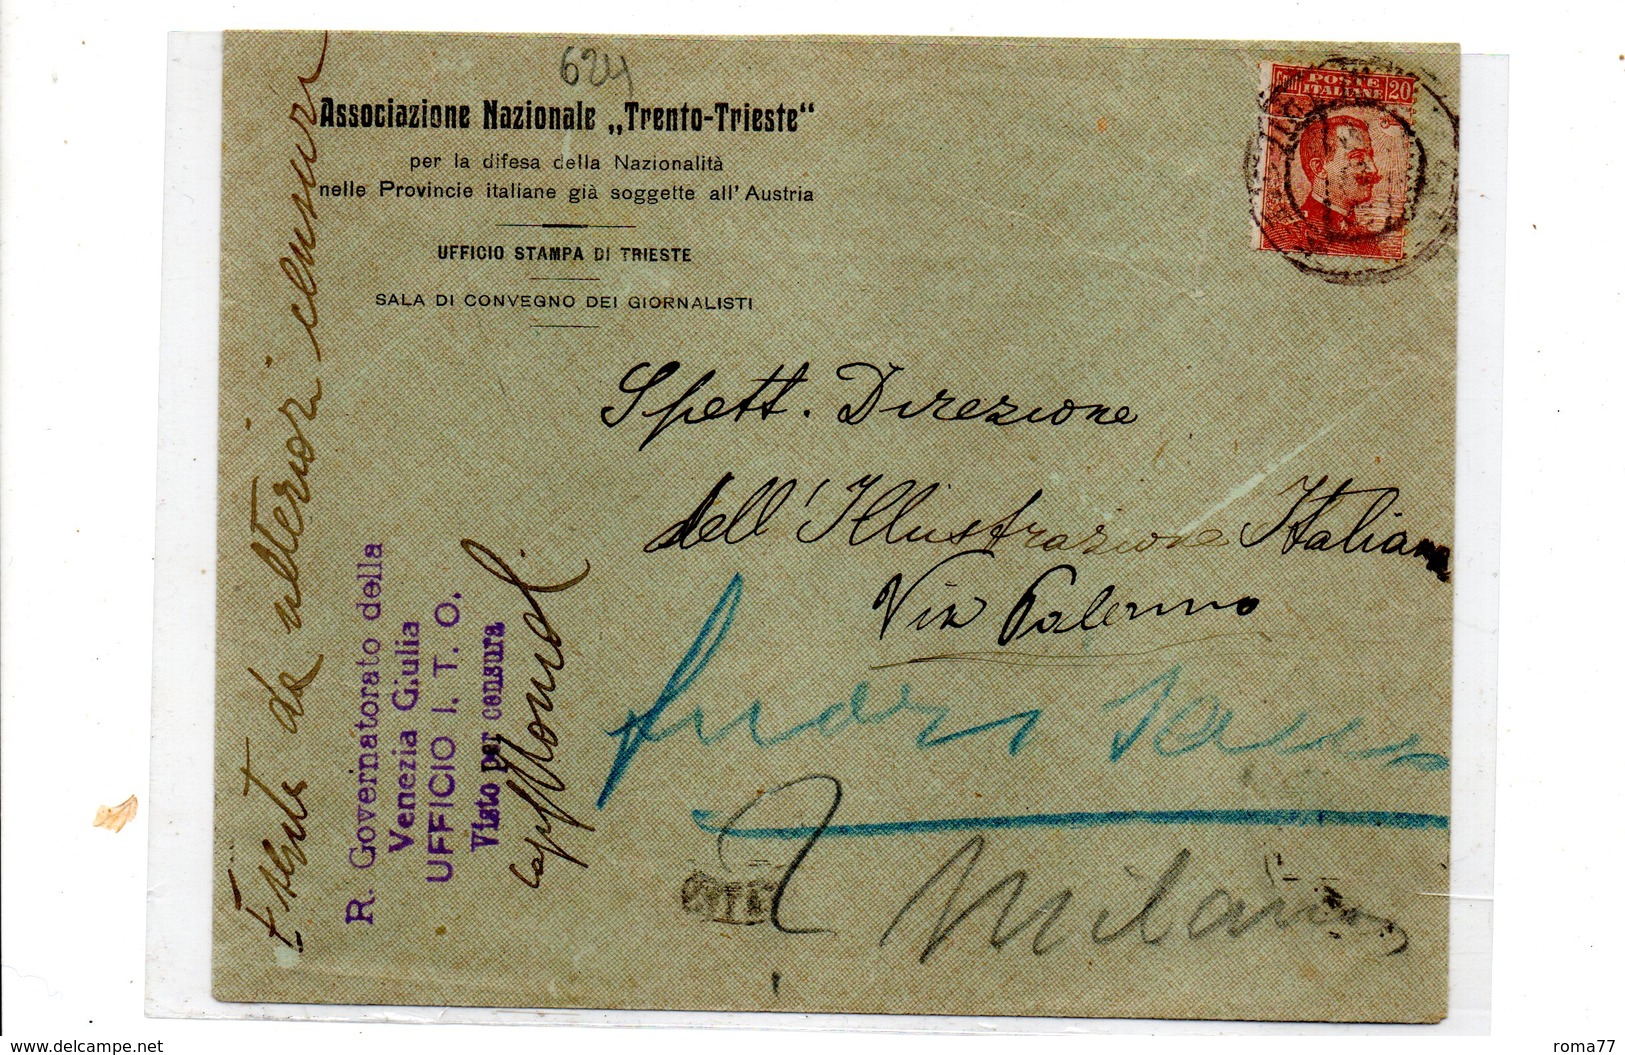 624
Associazione Nazionale „Trento-Trieste“
per la difesa della Nazionalità
nelle Provincie italiane già soggette all' Austria
UFFICIO STAMPA DI TRIESTE
SALA DI CONVEGNO DEI GIORNALISTI
POSTE
ITALIANE 20
Spett. Direzione
dell'Illustrazione Italiana
Via Palermo
Milano
Esente da ulteriori censure
R. Governatorato della
Venezia Giulia
UFFICIO I. T. O.
Visto per censura
delcampe.net
roma77